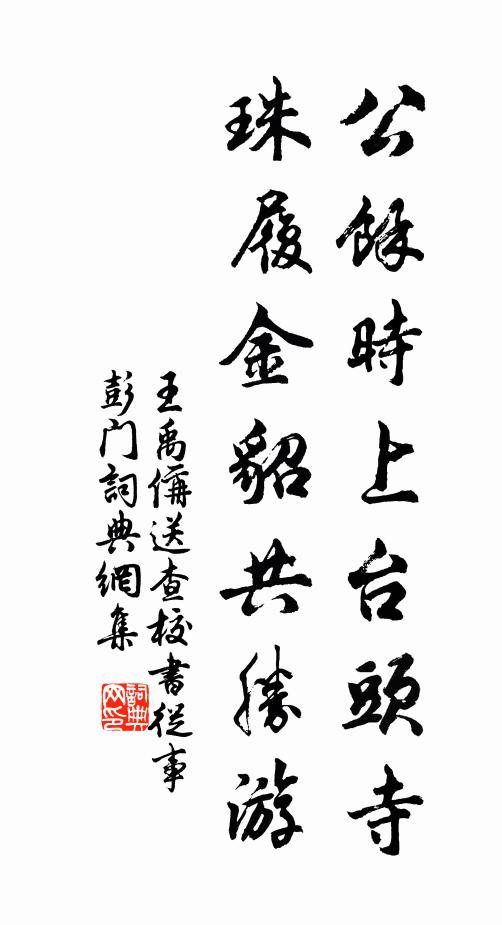 公餘時上台頭寺
珠履金貂共勝游
王禹偁送查校書從事
彭门詞典網集
詞典网印